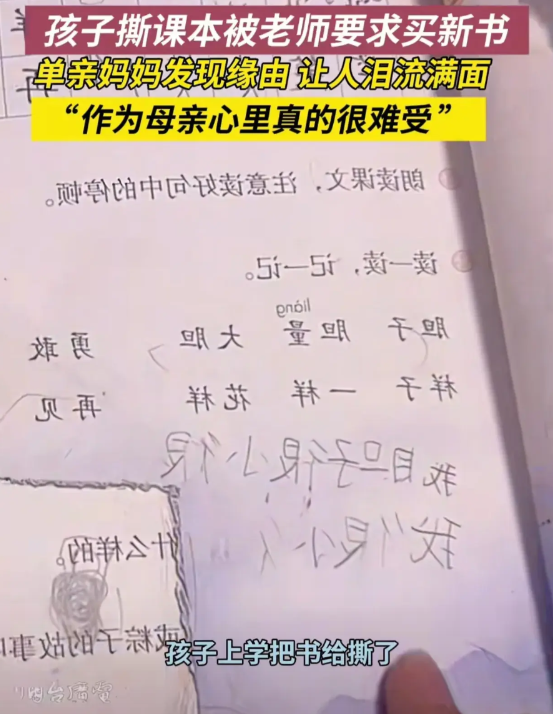 孩子撕课本被老师要求买新书
单亲妈妈发现缘由 让人泪流满面
“作为母亲心里真的很难受”
朗读课文,注意读好句中的停顿。
读一读,记一记。
liàng
胆子 胆量 大胆 勇敢
样子 一样 花样 再见
我胆子很小很
我很小
什么样的。
或粽子的故事
孩子上学把书给撕了